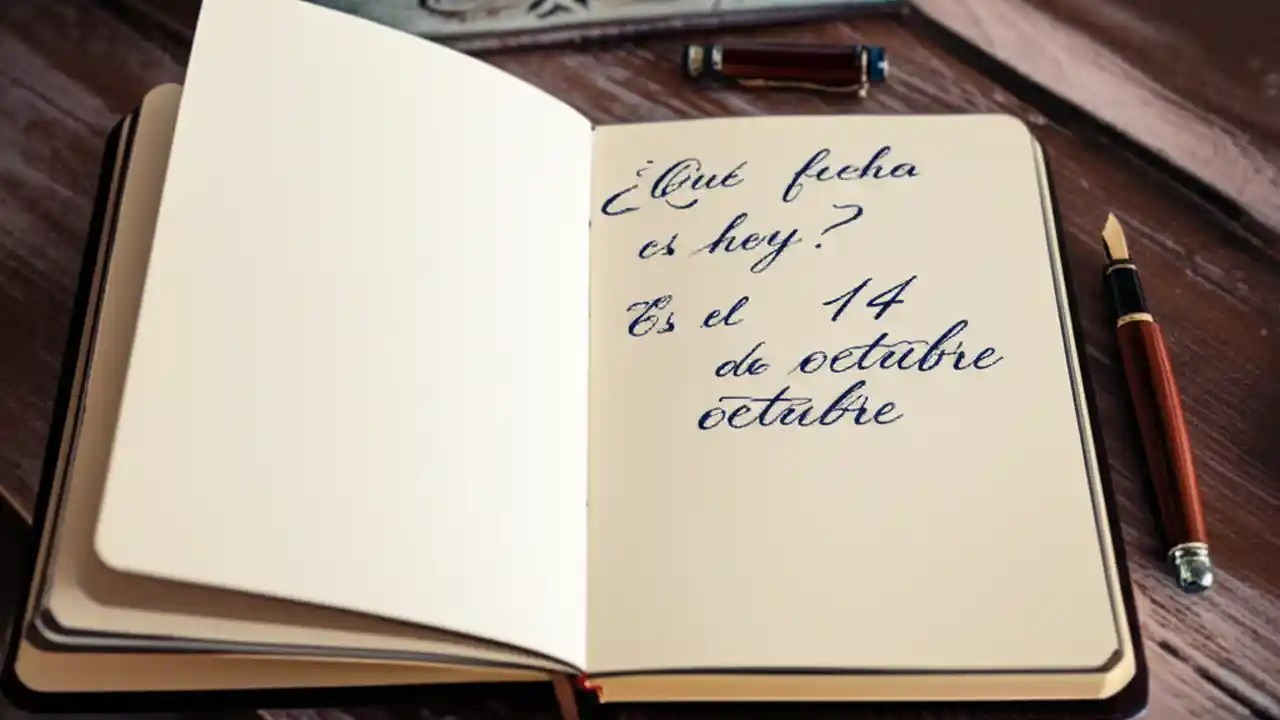 ¿Qué fecha
es hoy?
Es el 14
de octubre
octubre